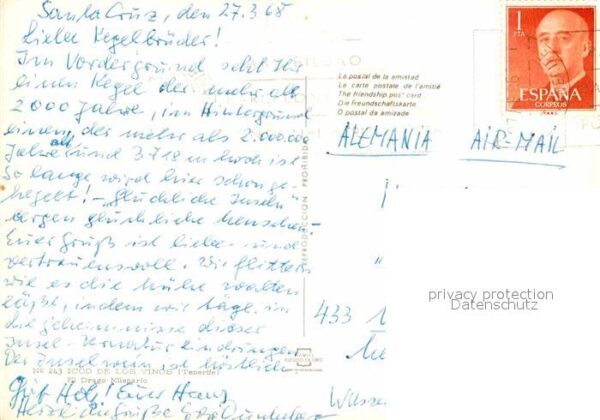 Santa Cruz, den 27.3.68
Liebe Kegelbrüder!
Im Vordergrund seht Ihr
einen Kegel der mehr als
2000 Jahre, im Hintergrund
einen, der mehr als 2.000.000
Jahre alt und 3718 m hoch ist
So lange wird hier schon ge-
kegelt! - Glückliche Inseln
bergen glückliche Menschen. -
Euer Gruß ist liebe- und
vertrauensvoll. Wir flittern
wie es die Höhe
läßt, indem wir tägl. in
die Geheimnisse dieser
Insel - eindringen.
Der Inselwein ist köstlich
Gut Holz! Euer Hans
Herzliche Grüße
1
PTA
ESPAÑA
CORREOS
BILBAO
La postal de la amistad
La carte postale de l'amitié
The friendship post card
Die freundschaftskarte
O postal da amizade
ALEMANIA AIR-MAIL
REPRODUCCION PROHIBIDA
433
privacy protection
Datenschutz
No 243 ICOD DE LOS VINOS (Tenerife)
El Drago Milenario